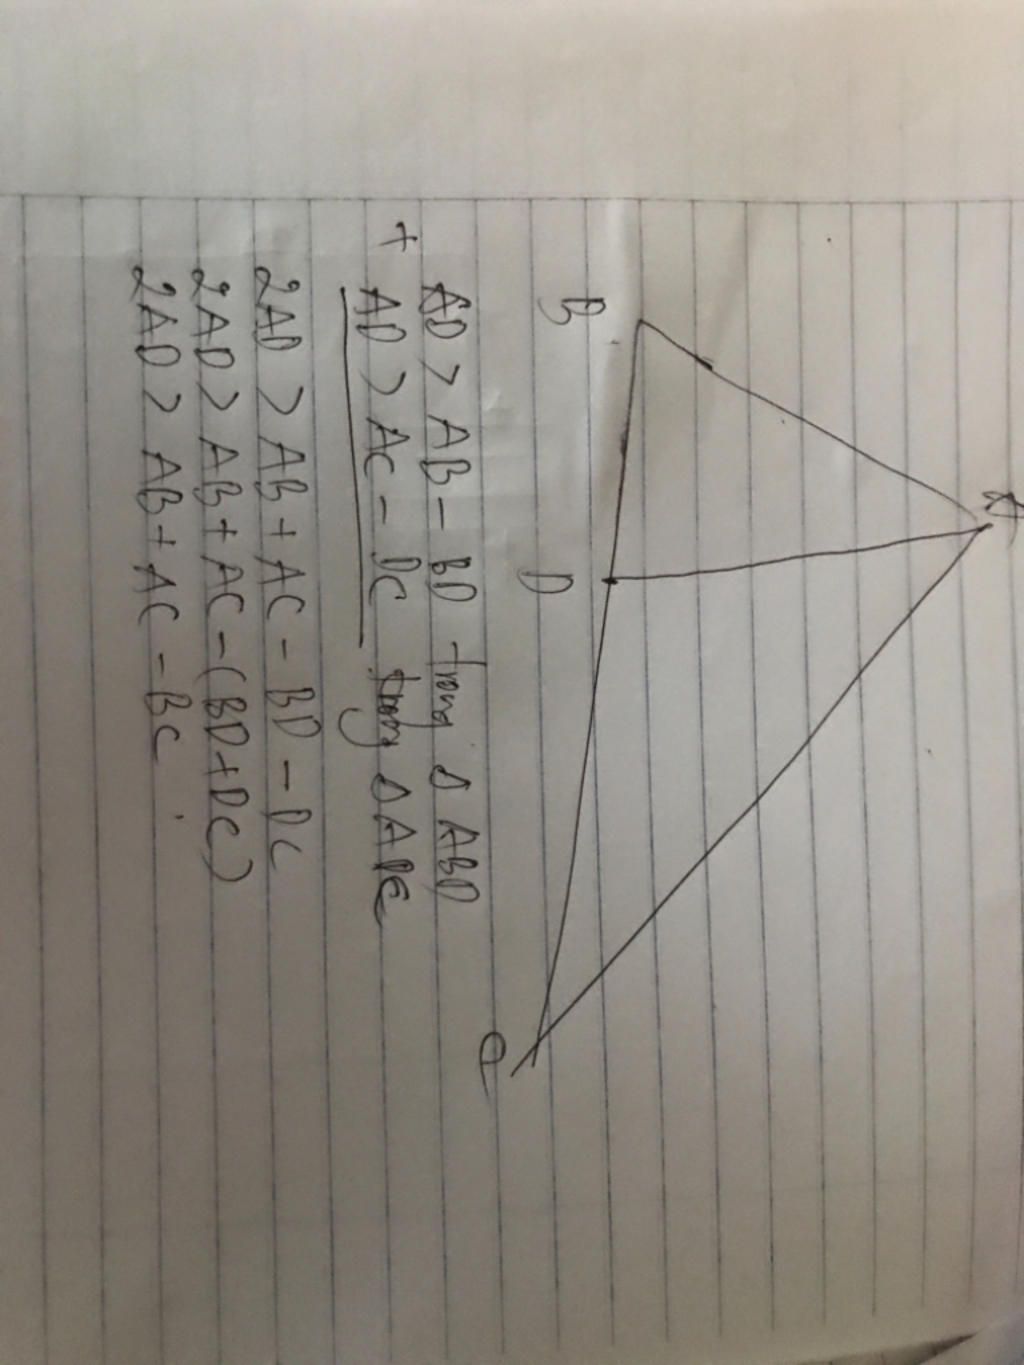 A
B
D
C
AD > AB - BD trong Δ ABD
+
AD > AC - DC trong Δ ADC
2AD > AB + AC - BD - DC
2AD > AB + AC - (BD + DC)
2AD > AB + AC - BC